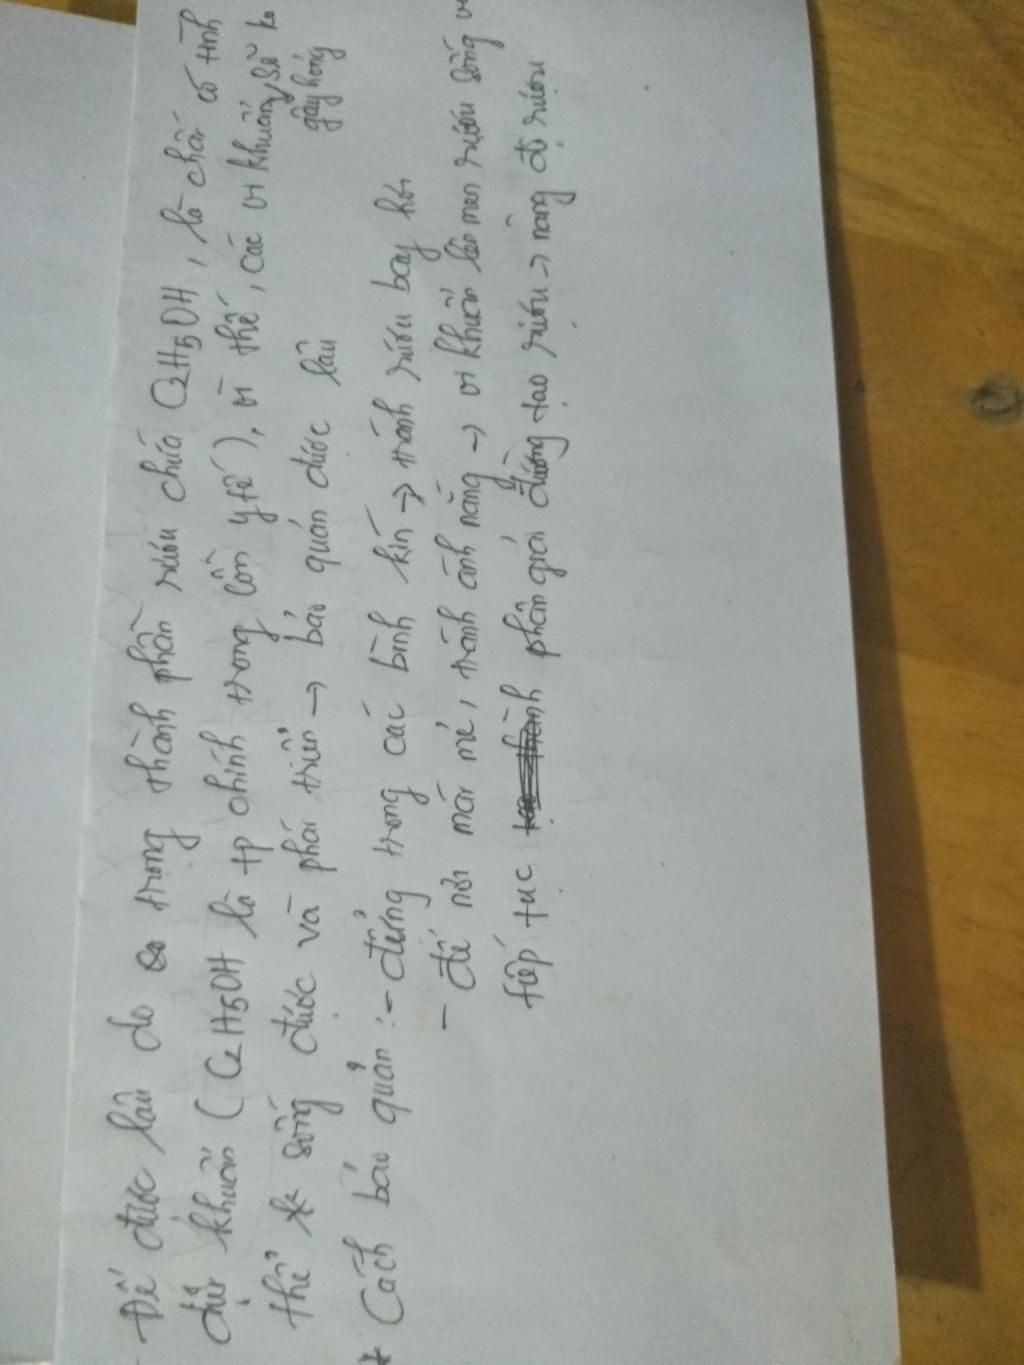 - Để được lâu do trong thành phần rượu chứa C2H5OH, là chất có tính
khử khuẩn (C2H5OH là tp chính trong cồn y tế), vì thế, các vi khuẩn gây hỏng sẽ ko
thể sống được và phát triển → bảo quản được lâu
* Cách bảo quản: - đựng trong các bình kín → tránh rượu bay hơi
- để nơi mát mẻ, tránh ánh nắng → vi khuẩn lên men rượu sống và
tiếp tục phân giải đường tạo rượu → nặng độ rượu